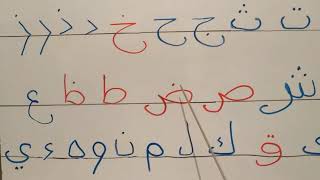 ت ث ج ح خ د ذ ر ز
ش ص ض ط ظ ع
ق ك ل م ن و ه ء ي